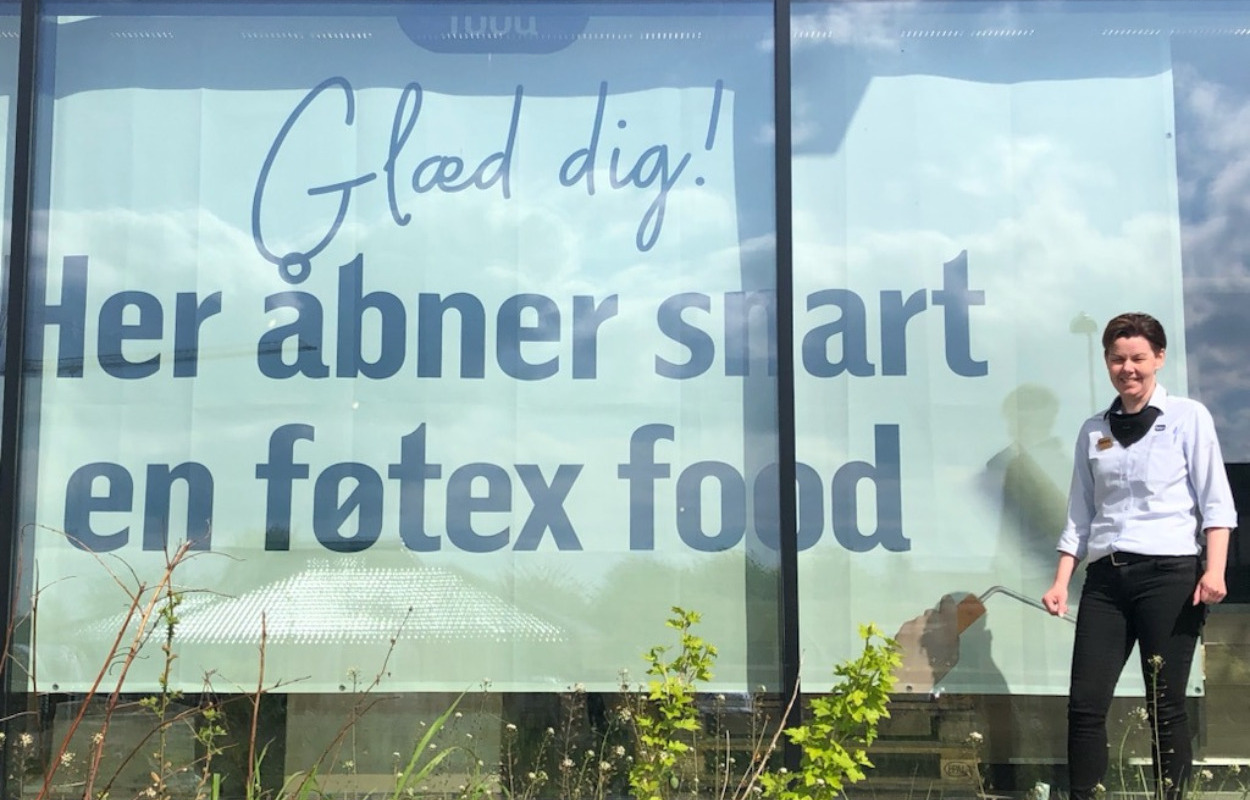 food
Glæd dig!
Her åbner snart
en føtex food